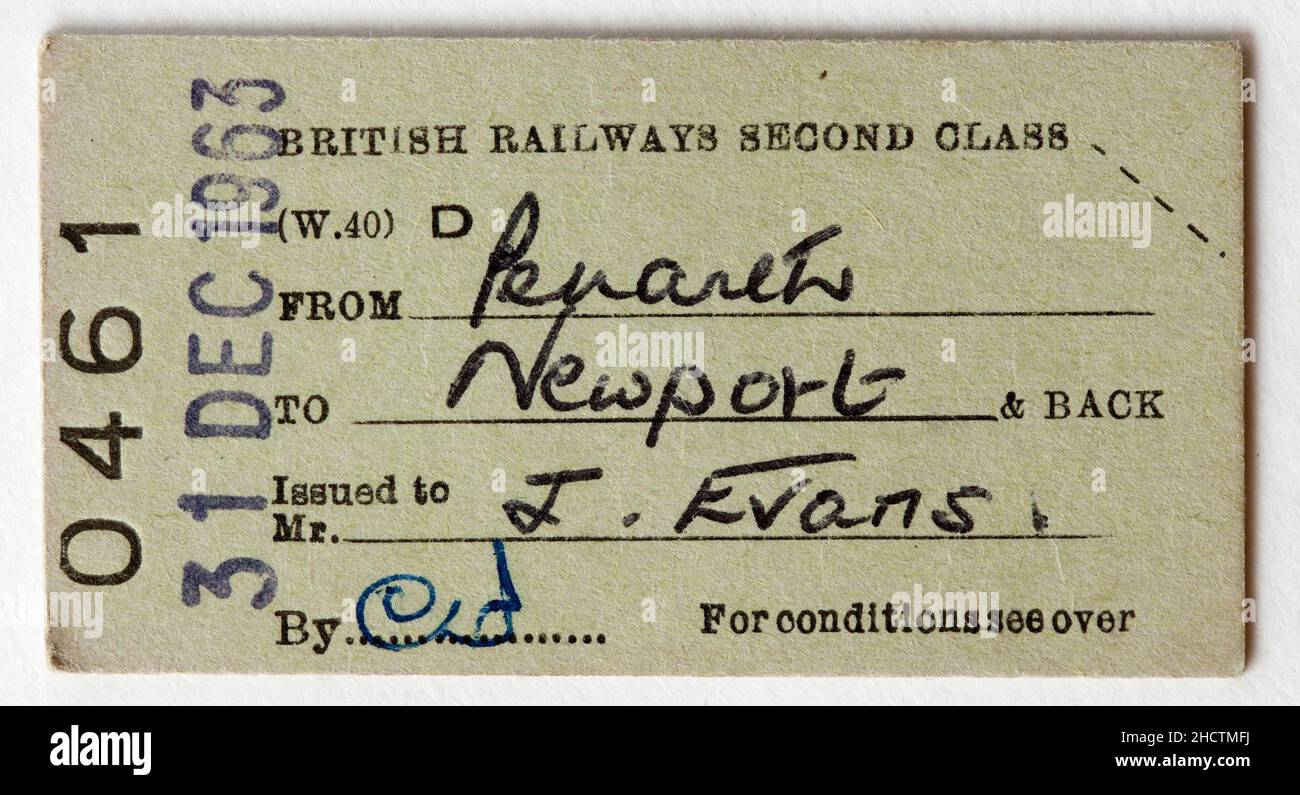 0461
31 DEC 1963
BRITISH RAILWAYS SECOND CLASS
(W.40) D
FROM Penarth
TO Newport & BACK
Issued to
Mr. J. Evans.
By
For conditions see over
alamy
Image ID: 2HCTMFJ
www.alamy.com